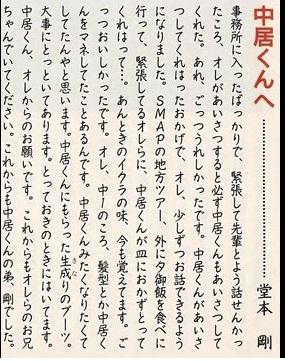 中居くんへ………………………堂本　剛
事務所に入ったばっかりで、緊張して先輩とよう話せんかっ
たころ、オレがあいさつすると必ず中居くんもあいさつして
くれた。あれ、ごっつうれしかったです。中居くんがあいさ
つしてくれはったおかげで、オレ、少しずつお話できるよう
になりました。SMAPの地方ツアー、外に夕御飯を食べに
行って、緊張してるオレらに、中居くんが皿におかずとって
くれはって…。あんときのイクラの味、今も覚えてます。ご
っつおいしかったです。オレ、中1のころ、髪型とか中居く
んをマネしてたことあるんです。中居くんみたくなりたくて
してたんやと思います。中居くんにもらった生成りのブーツ。
きな
大事にとっといてあります。とっておきのときにはいてます。
中居くん、オレからのお願いです。これからもオレらのお兄
ちゃんでいてください。これからも中居くんの弟、剛でした。